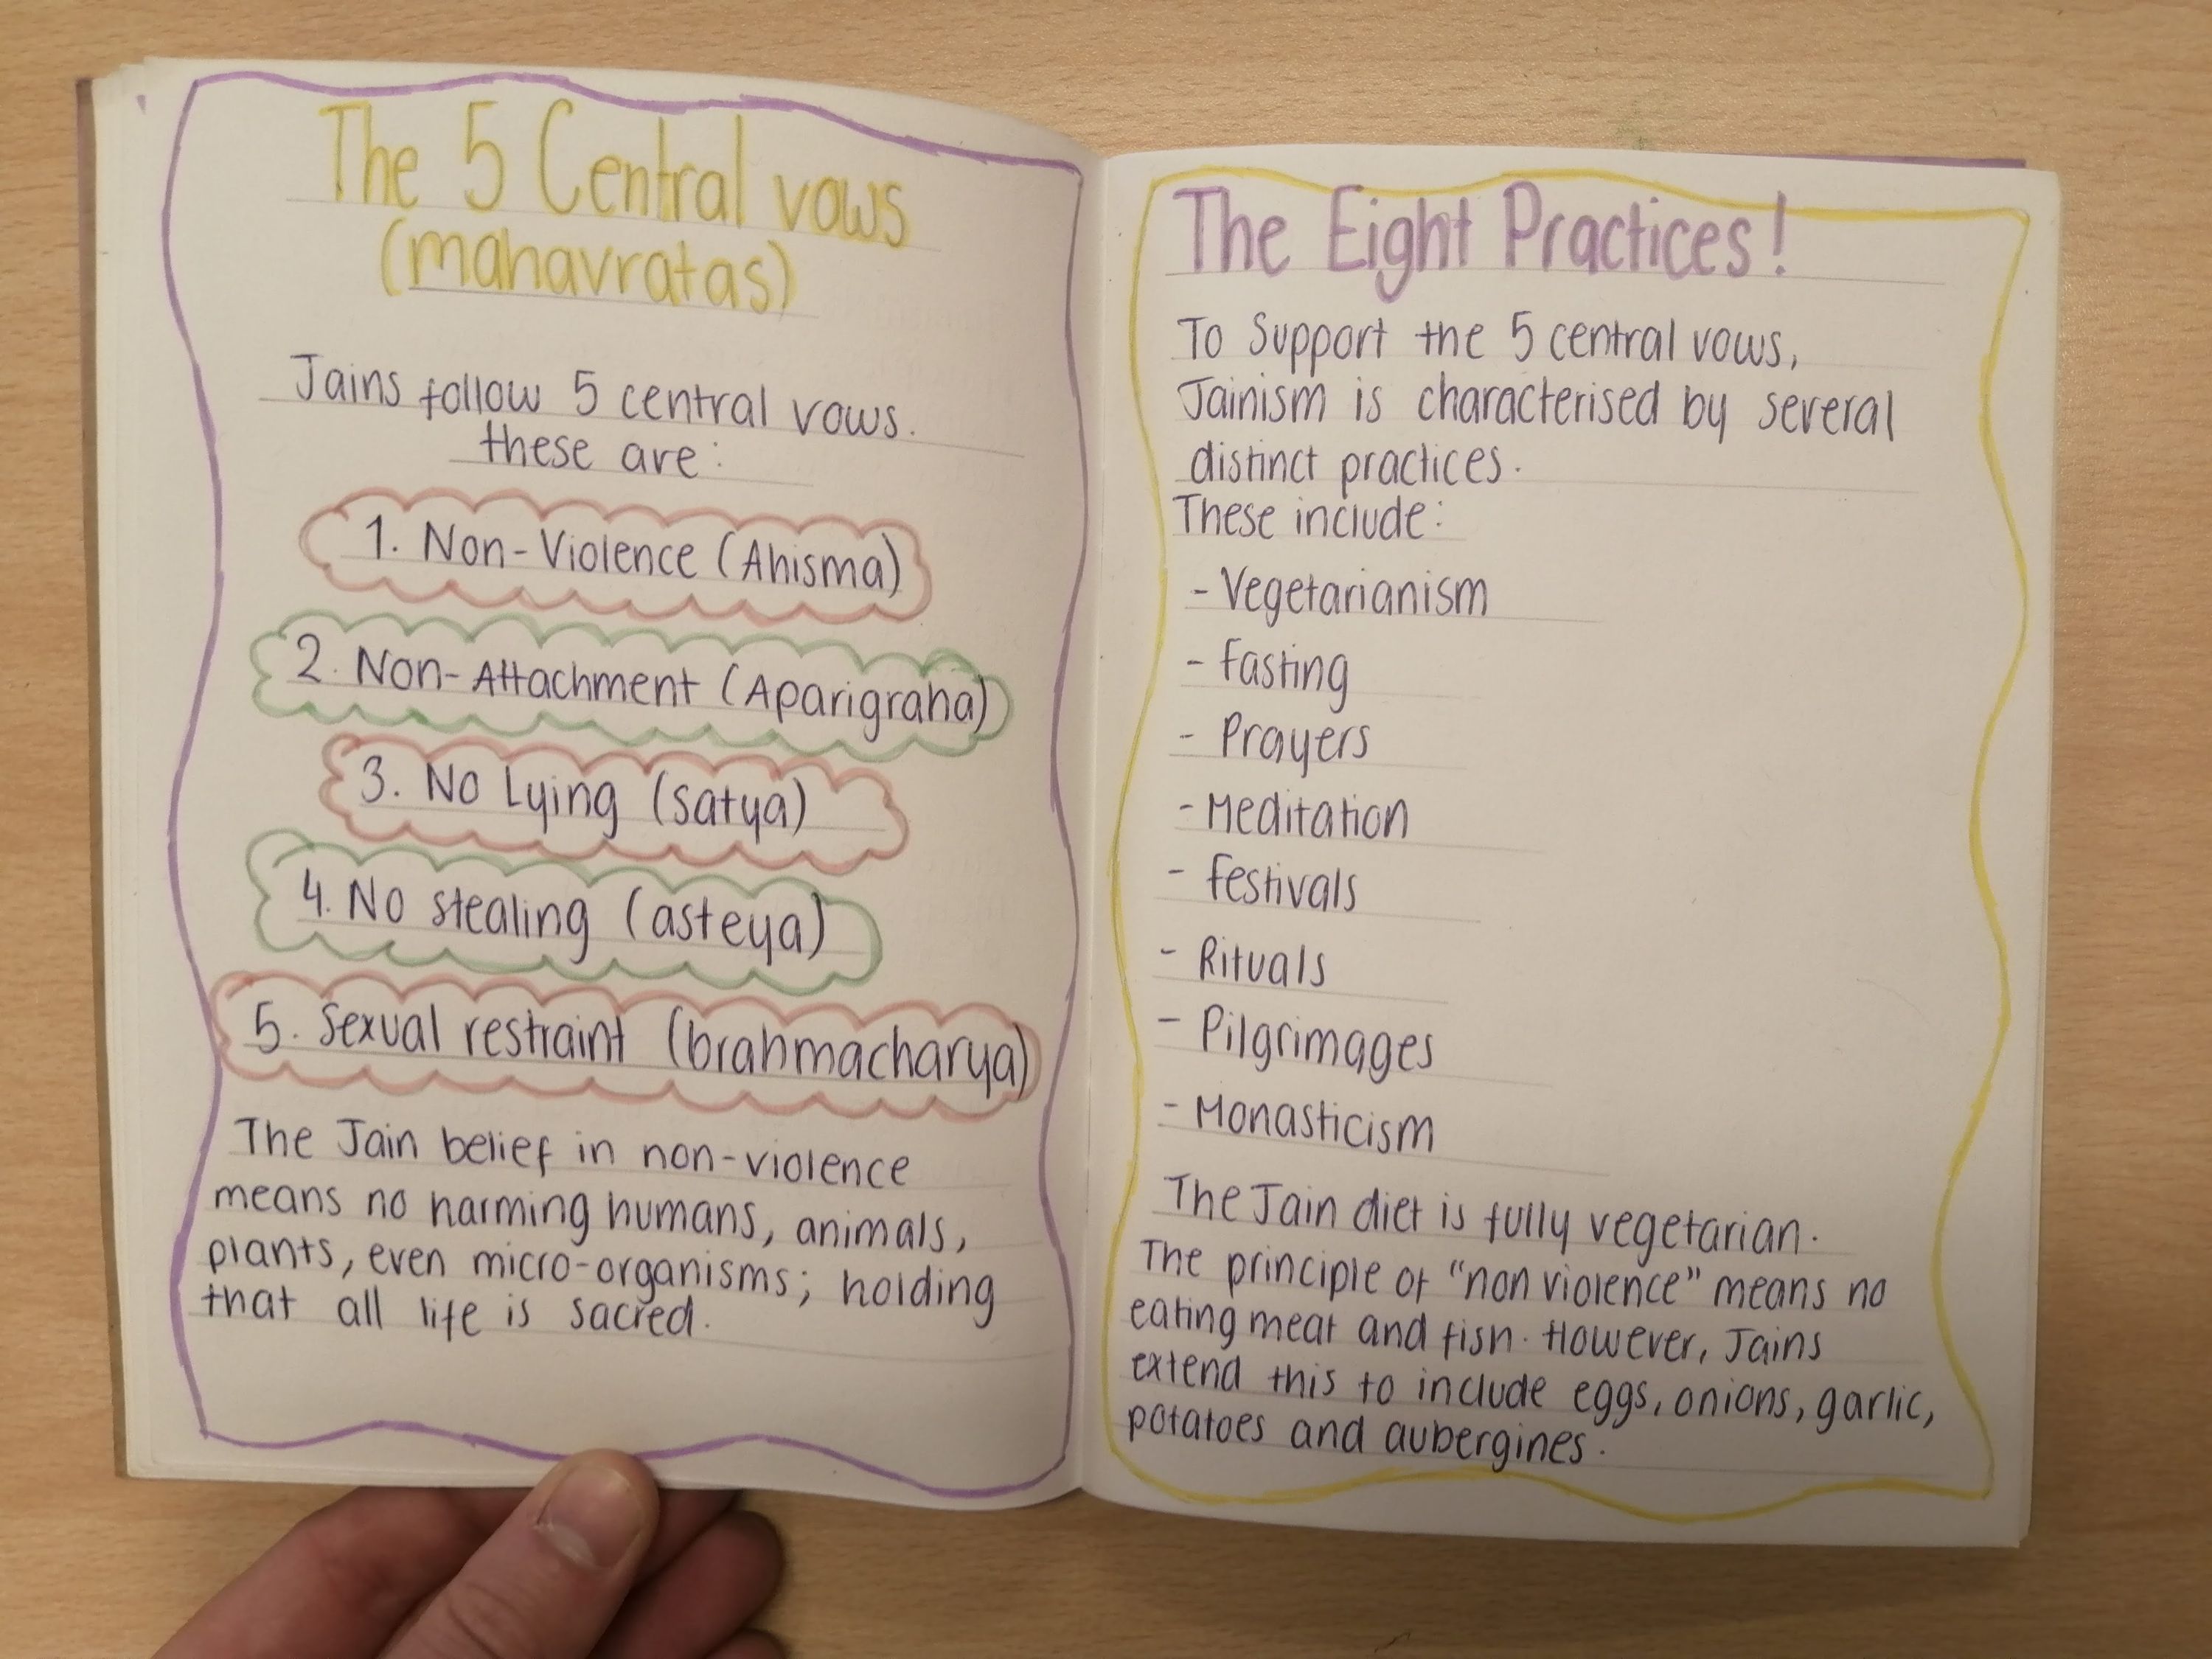 The 5 Central vows
(mahavratas)
Jains follow 5 central vows.
these are:
1. Non-Violence (Ahisma)
2. Non-Attachment (Aparigraha)
3. No Lying (satya)
4. No stealing (asteya)
5. Sexual restraint (brahmacharya)
The Jain belief in non-violence
means no harming humans, animals,
plants, even micro-organisms; holding
that all life is sacred.
The Eight Practices!
To Support the 5 central vows,
Jainism is characterised by several
distinct practices.
These include:
- Vegetarianism
- Fasting
- Prayers
- Meditation
- Festivals
- Rituals
- Pilgrimages
- Monasticism
The Jain diet is fully vegetarian.
The principle of "non violence" means no
eating meat and fish. However, Jains
extend this to include eggs, onions, garlic,
potatoes and aubergines.